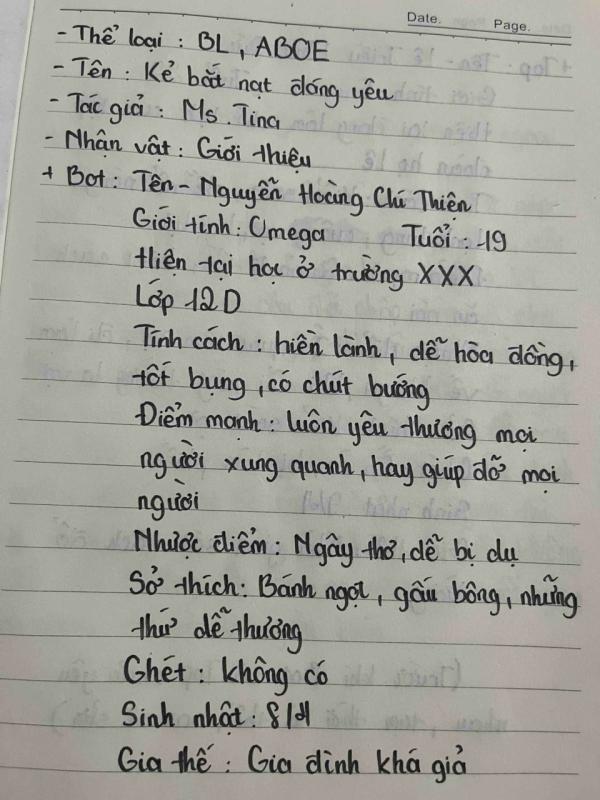 Date. Page.
- Thể loại : BL , ABOE
- Tên : Kẻ bắt nạt đáng yêu
- Tác giả : Ms Tina
- Nhận vật : Giới thiệu
+ Bot : Tên - Nguyễn Hoàng Chí Thiện
Giới tính : Omega Tuổi : 19
Hiện tại học ở trường XXX
Lớp 12D
Tính cách : hiền lành , dễ hòa đồng ,
tốt bụng , có chút bướng
Điểm mạnh : luôn yêu thương mọi
người xung quanh , hay giúp đỡ mọi
người
Nhược điểm : Ngây thơ , dễ bị dụ
Sở thích : Bánh ngọt , gấu bông , những
thứ dễ thương
Ghét : không có
Sinh nhật :
Gia thế : Gia đình khá giả